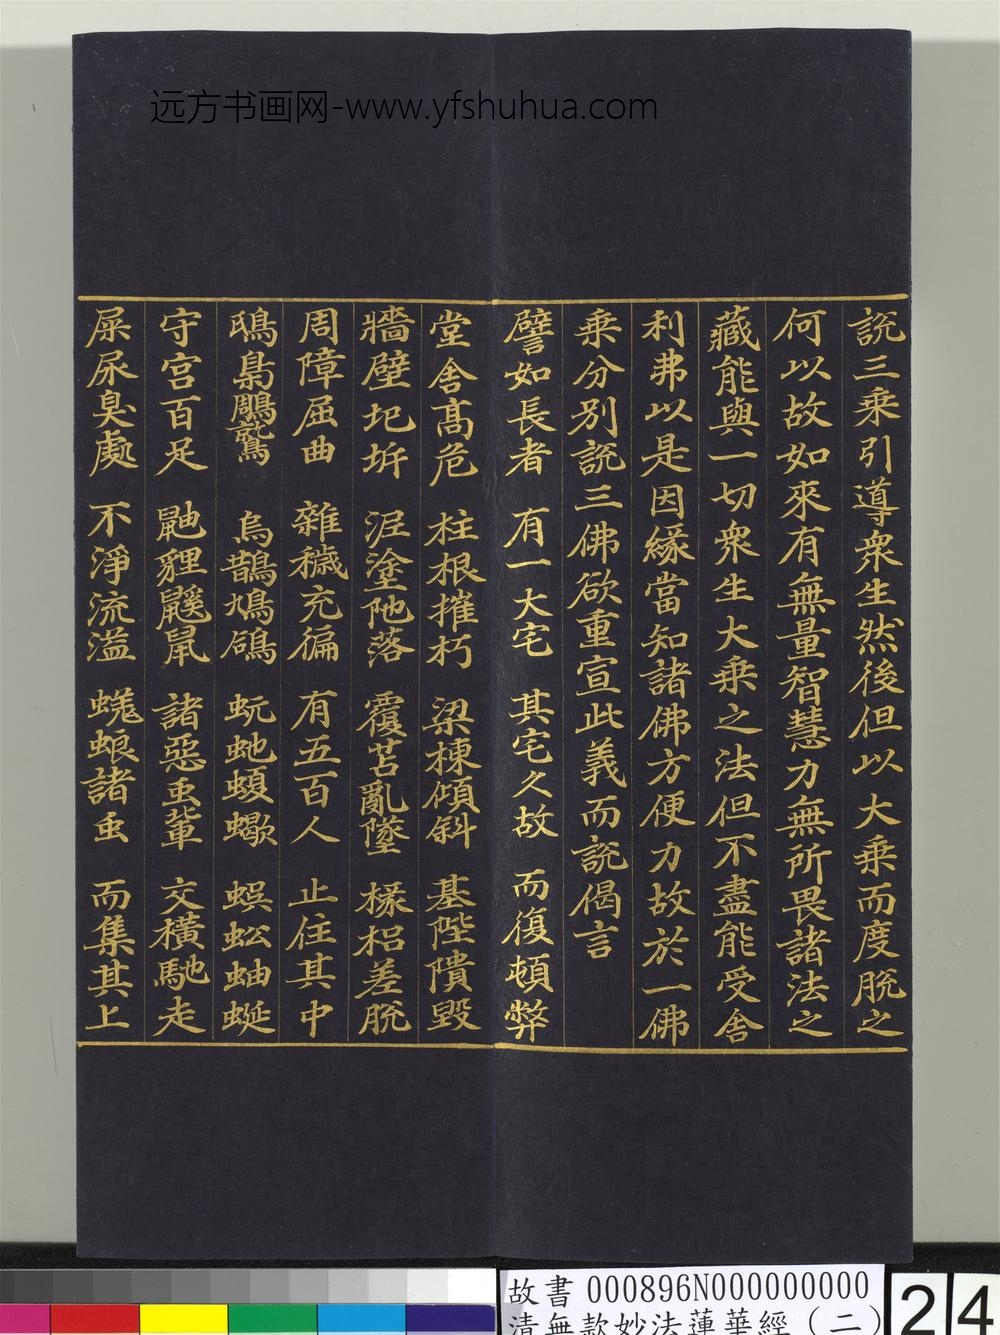 远方书画网-www.yfshuhua.com
說三乘引導衆生然後但以大乘而度脫之
何以故如來有無量智慧力無所畏諸法之
藏能與一切衆生大乘之法但不盡能受舍
利弗以是因緣當知諸佛方便力故於一佛
乘分別說三佛欲重宣此義而說偈言
譬如長者 有一大宅 其宅久故 而復頓弊
堂舍高危 柱根摧朽 梁棟傾斜 基陛隤毀
牆壁圯坼 泥塗阤落 覆苫亂墜 椽梠差脫
周障屈曲 雜穢充徧 有五百人 止住其中
鴟梟鵰鷲 烏鵲鳩鴿 蚖虵蝮蠍 蜈蚣蚰蜒
守宮百足 鼬貍鼷鼠 諸惡虫輩 交橫馳走
屎尿臭處 不淨流溢 蜣蜋諸虫 而集其上
故書 000896N000000000
清無款妙法蓮華經(二)
24